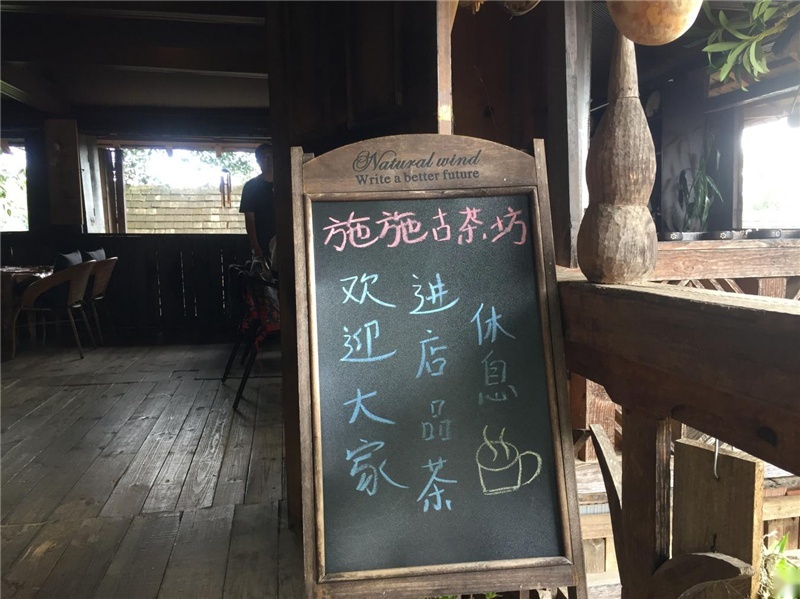 Natural wind
Write a better future
施施古茶坊
欢迎大家
进店品茶
休息